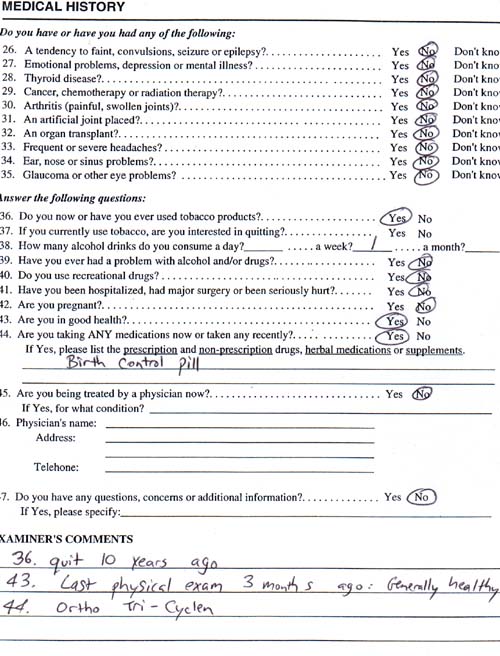 MEDICAL HISTORY
Do you have or have you had any of the following:
26. A tendency to faint, convulsions, seizure or epilepsy? Yes No Don't kno
27. Emotional problems, depression or mental illness? Yes No Don't kno
28. Thyroid disease? Yes No Don't kno
29. Cancer, chemotherapy or radiation therapy? Yes No Don't kno
30. Arthritis (painful, swollen joints)? Yes No Don't kno
31. An artificial joint placed? Yes No Don't kno
32. An organ transplant? Yes No Don't kno
33. Frequent or severe headaches? Yes No Don't kno
34. Ear, nose or sinus problems? Yes No Don't kno
35. Glaucoma or other eye problems? Yes No Don't kno
Answer the following questions:
36. Do you now or have you ever used tobacco products? Yes No
37. If you currently use tobacco, are you interested in quitting? Yes No
38. How many alcohol drinks do you consume a day? a week? 1 a month?
39. Have you ever had a problem with alcohol and/or drugs? Yes No
40. Do you use recreational drugs? Yes No
41. Have you been hospitalized, had major surgery or been seriously hurt? Yes No
42. Are you pregnant? Yes No
43. Are you in good health? Yes No
44. Are you taking ANY medications now or taken any recently? Yes No
If Yes, please list the prescription and non-prescription drugs, herbal medications or supplements.
Birth Control Pill
45. Are you being treated by a physician now? Yes No
If Yes, for what condition?
46. Physician's name:
Address:
Telehone:
47. Do you have any questions, concerns or additional information? Yes No
If Yes, please specify:
EXAMINER'S COMMENTS
36. quit 10 years ago
43. Last physical exam 3 months ago: Generally healthy
44. Ortho Tri-Cyclen